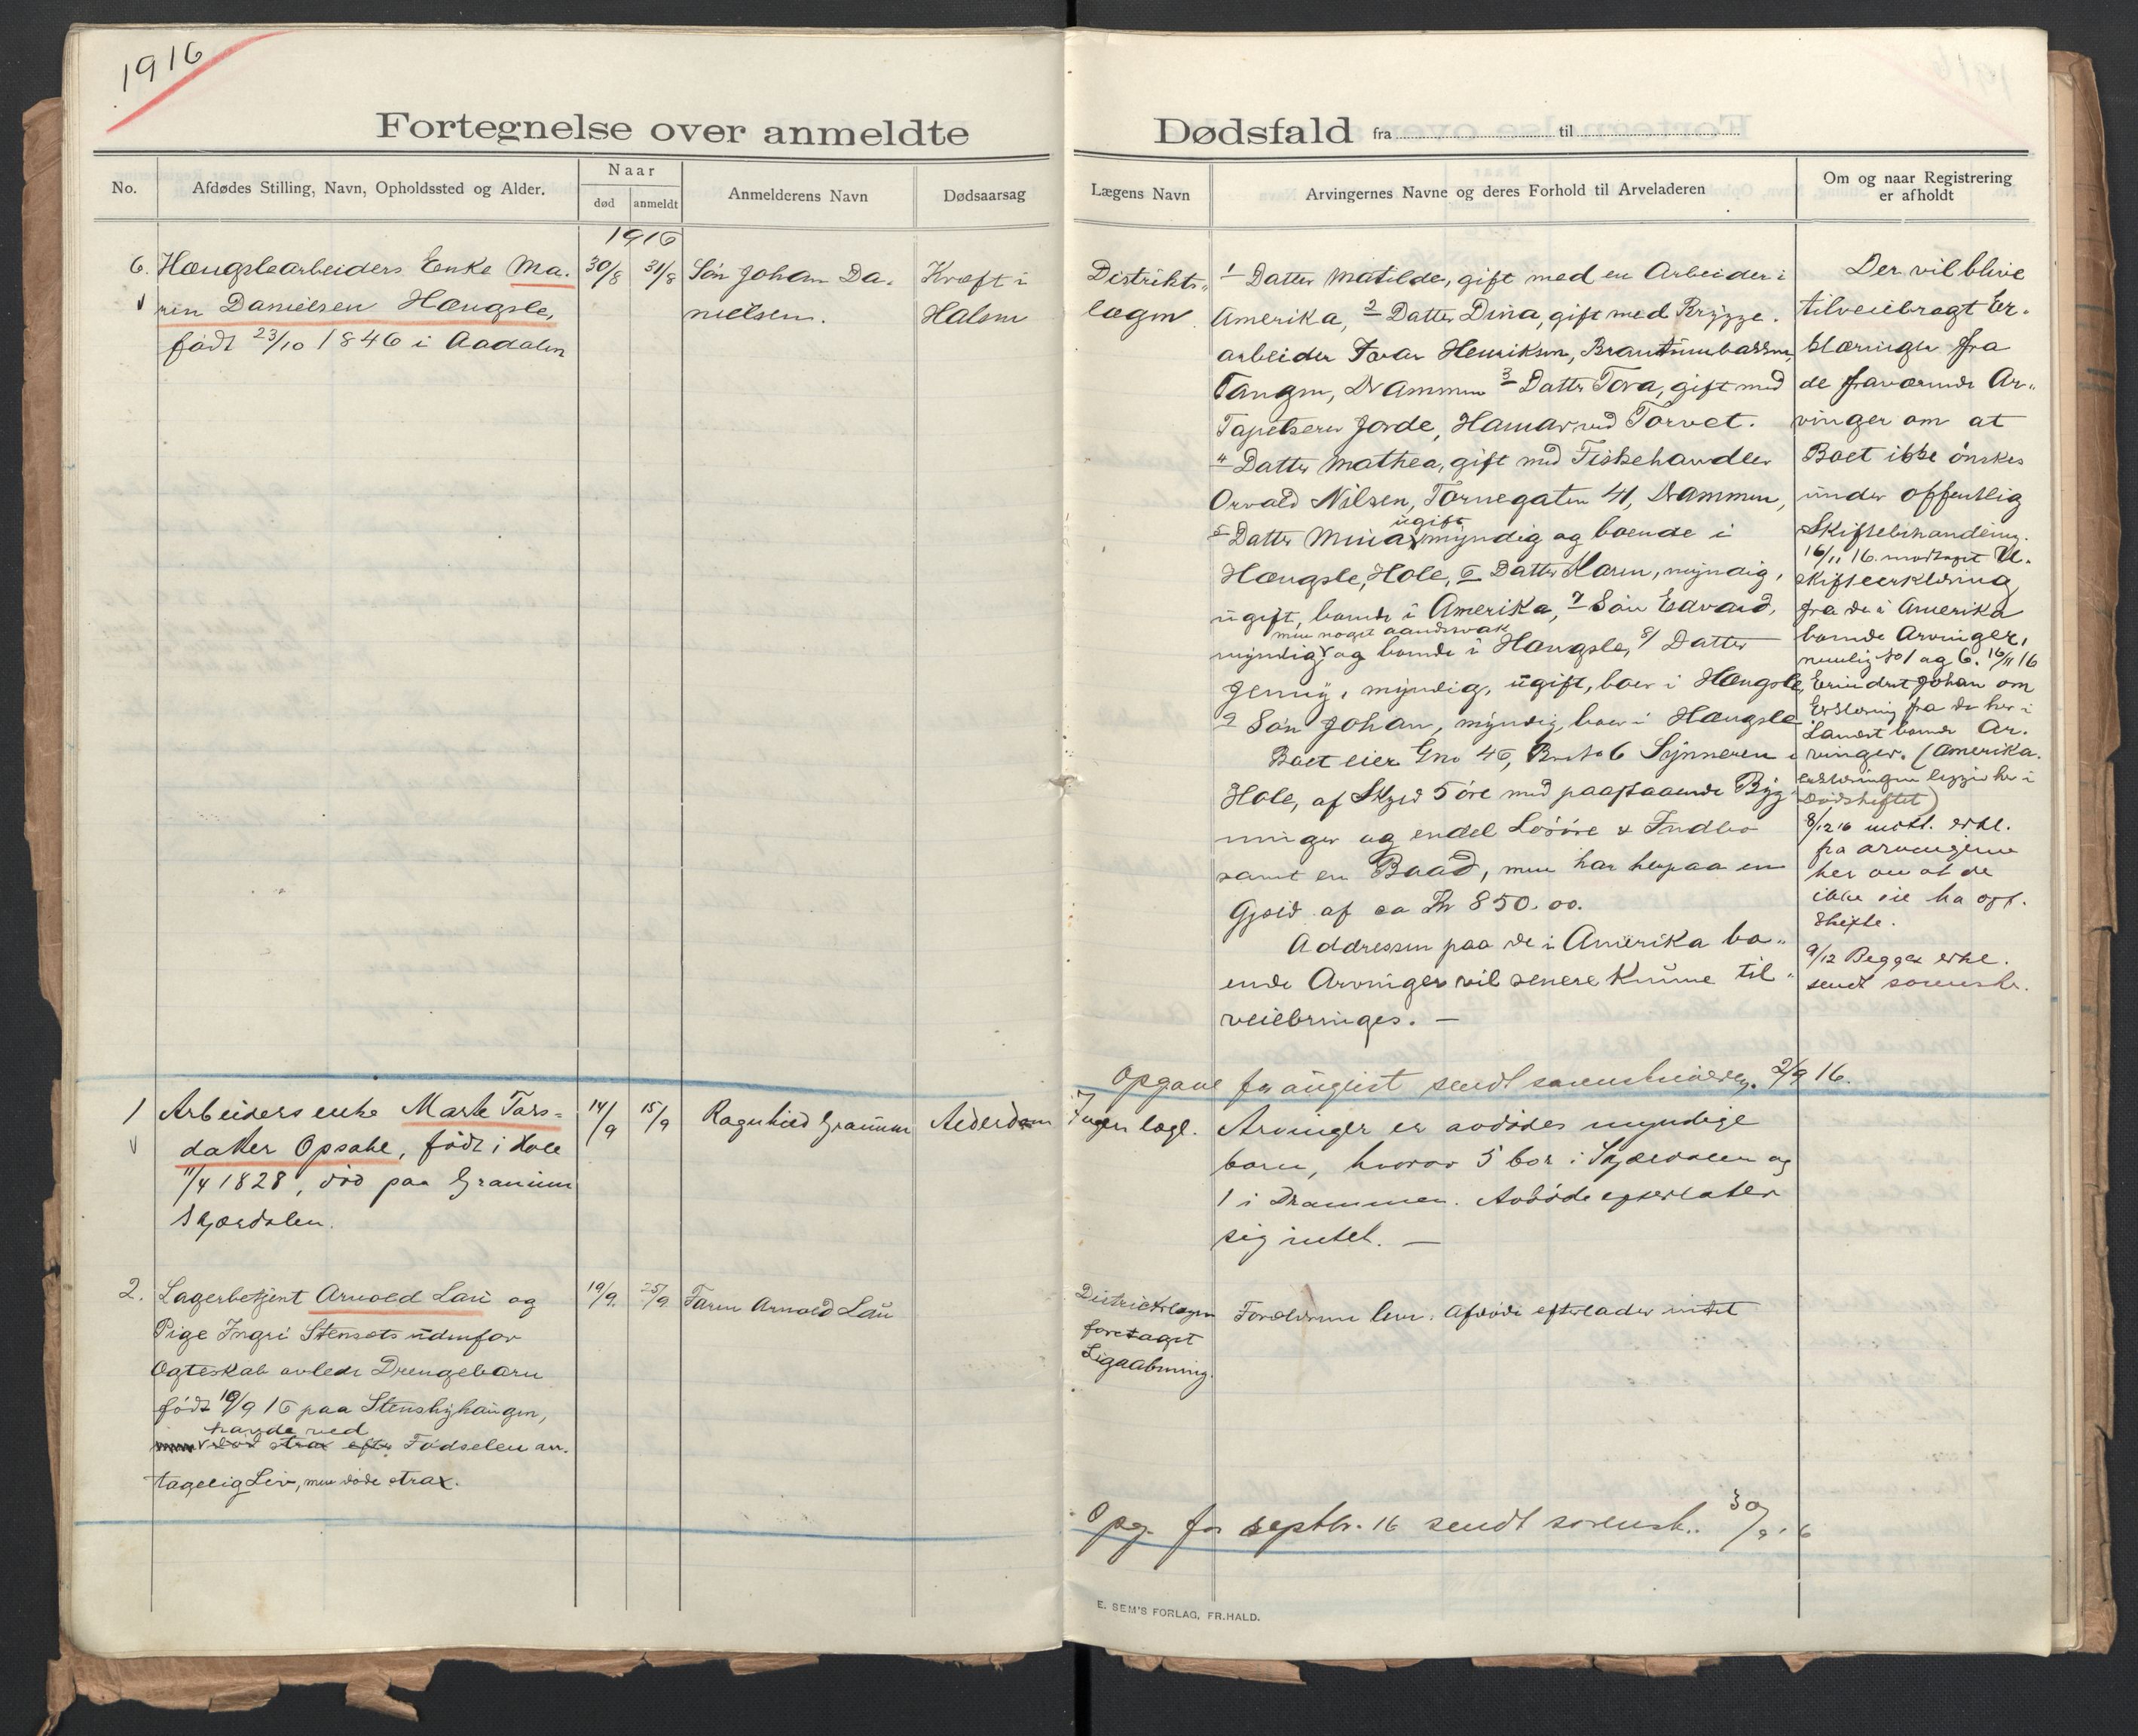 1916
Fortegnelse over anmeldte
Dødsfald fra til
No.
Afdødes Stilling, Navn, Opholdssted og Alder.
Naar
død
anmeldt
Anmelderens Navn
Dødsaarsag
Lægens Navn
Arvingernes Navne og deres Forhold til Arveladeren
Om og naar Registrering
er afholdt
1916
6. Hængslearbeiders Enke Ma-
rin Danielsen Hængsle,
født 23/10 1846 i Aadalen
30/8
31/8
Søn Johan Da-
nielsen.
Kræft i
Halsen
Distrikts-
lægen
1 Datter Matilde, gift med en Arbeider i
Amerika, 2 Datter Dina, gift med Brygge-
arbeider Ivar Henriksen,
Tangen, Drammen 3 Datter Tora, gift med
Tapetserer Jorde, Hamar ved Torvet.
4 Datter Mathea, gift med Fiskehandler
Orvald Nilsen, Tornegaten 41, Drammen,
ugift
5 Datter Mina, myndig og boende i
Hængsle, Hole, 6 Datter Karen, myndig,
ugift, boende i Amerika, 7 Søn Edvard,
men noget aandsvak
myndig, og boende i Hængsle, 8/ Datter
Jenny, myndig, ugift, boer i Hængsle,
9 Søn Johan, myndig, boer i Hængsle.
Boet eier Gno 46, Bruksno 6 Synneren i
Hole, af Skyld 5 øre med paastaaende Byg-
ninger og endel Løsøre & Indbo
samt en Baad, men har herpaa en
Gjæld af ca Kr 850.00.
Addressen paa de i Amerika bo-
ende Arvinger vil senere kunne til-
veiebringes. —
Der vil blive
tilveiebragt Er-
klæringer fra
de fraværende Ar-
vinger om at
Boet ikke ønskes
under offentlig
Skiftebehandling.
16/11 16. modtaget U-
skifteerklæring
fra de i Amerika
boende Arvinger,
nemlig No 1 og 6. 16/11 16
Erindret Johan om
Erklæring fra de her i
Landet boende Ar-
vinger. (Amerika-
erklæringen ligger her i
Dødsheftet)
8/12 16 mott. erkl.
fra arvingerne
her om at de
ikke vil ha off.
Skifte.
9/12 Begges erkl.
sendt sorenskr.
Opgave for august sendt sorenskriveren. 2/9 16.
1 Arbeiders enke Marte Tors-
datter Opsahl, født i Hole
11/4 1828, død paa Granum
Skjærdalen.
14/9
15/9
Ragnhild Granum
Alderdom
Ingen læge.
Arvinger er avdødes myndige
barn, hvorav 5 bor i Skjærdalen og
1 i Drammen. Avdøde efterlater
sig intet. —
2. Lagerbetjent Arnold Lau og
Pige Ingri Stensets udenfor
Ægteskab avlede Drengebarn
født 19/9 16 paa Stenshyhaugen,
havde ved
død strax efter Fødselen an-
tagelig Liv, men døde strax.
19/9.
25/9
Faren Arnold Lau
Districtslægen
foretaget
Ligaabning.
Forældrene lever. Afdøde efterlader intet
Opg. for septbr. 16 sendt sorensk.. 30/9 16
E. SEM'S FORLAG, FR.HALD.